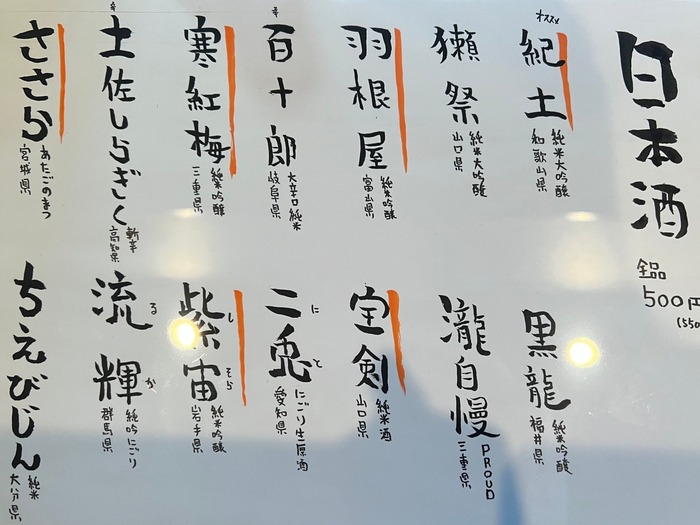 日本酒
全品
500円
(550
オススメ
紀土
純米大吟醸
和歌山県
獺祭
純米大吟醸
山口県
羽根屋
純米吟醸
富山県
辛
百十郎
大辛口純米
岐阜県
寒紅梅
純米吟醸
三重県
辛
土佐しらぎく
斬辛
高知県
ささら
あたごのまつ
宮城県
黒龍
純米吟醸
福井県
瀧自慢
PROUD
三重県
宝剣
純米酒
山口県
二兎
にと
にごり生原酒
愛知県
紫宙
しそら
純米吟醸
岩手県
流輝
るか
純吟にごり
群馬県
ちえびじん
純米
大分県